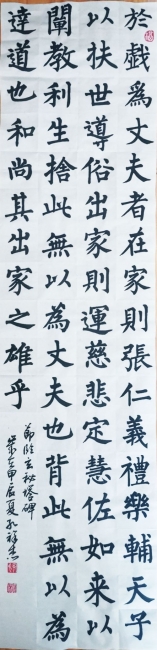 於戲為丈夫者在家則張仁義禮樂輔天子
以扶世導俗出家則運慈悲定慧佐如来以
闡教利生捨此無以為丈夫也背此無以為
達道也和尚其出家之雄乎
節臨玄秘塔碑
甲辰夏孔祥